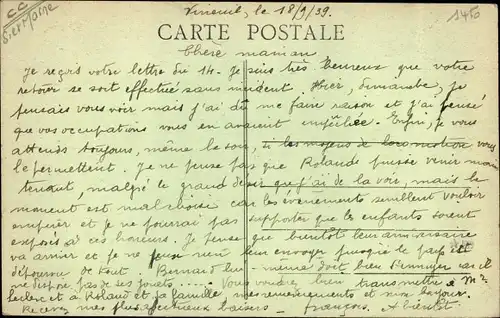 CC
Sre Marne
1450
Vineuil, le 18/9/39.
CARTE POSTALE
Chère maman
Je reçois votre lettre du 14. Je suis très heureux que votre
retour se soit effectué sans incident. Hier, dimanche, je
pensais vous voir mais j'ai dû me faire raison et j'ai pensé
que vos occupations vous en avaient empêchée. Enfin, je vous
attends toujours, même le soir, si les moyens de locomotion vous
le permettent. Je ne pense pas que Rolande puisse venir main
tenant, malgré le grand désir que j'ai de la voir, mais le
moment est mal choisi car les évènements semblent vouloir
empirer et je ne pourrai pas supporter que les enfants soient
exposés à ces horreurs. Je pense que bientôt leur anniversaire
va arriver et je ne peux rien leur envoyer puisque le pays est
dépourvu de tout. Bernard lui-même doit bien s'ennuyer car il
ne dispose pas de ses jouets ..... Vous voudrez bien transmettre à Me
Leclerc et à Roland et sa famille, mes remerciements et mon bonjour.
Recevez mes plus affectueux baisers - François. A bientôt.